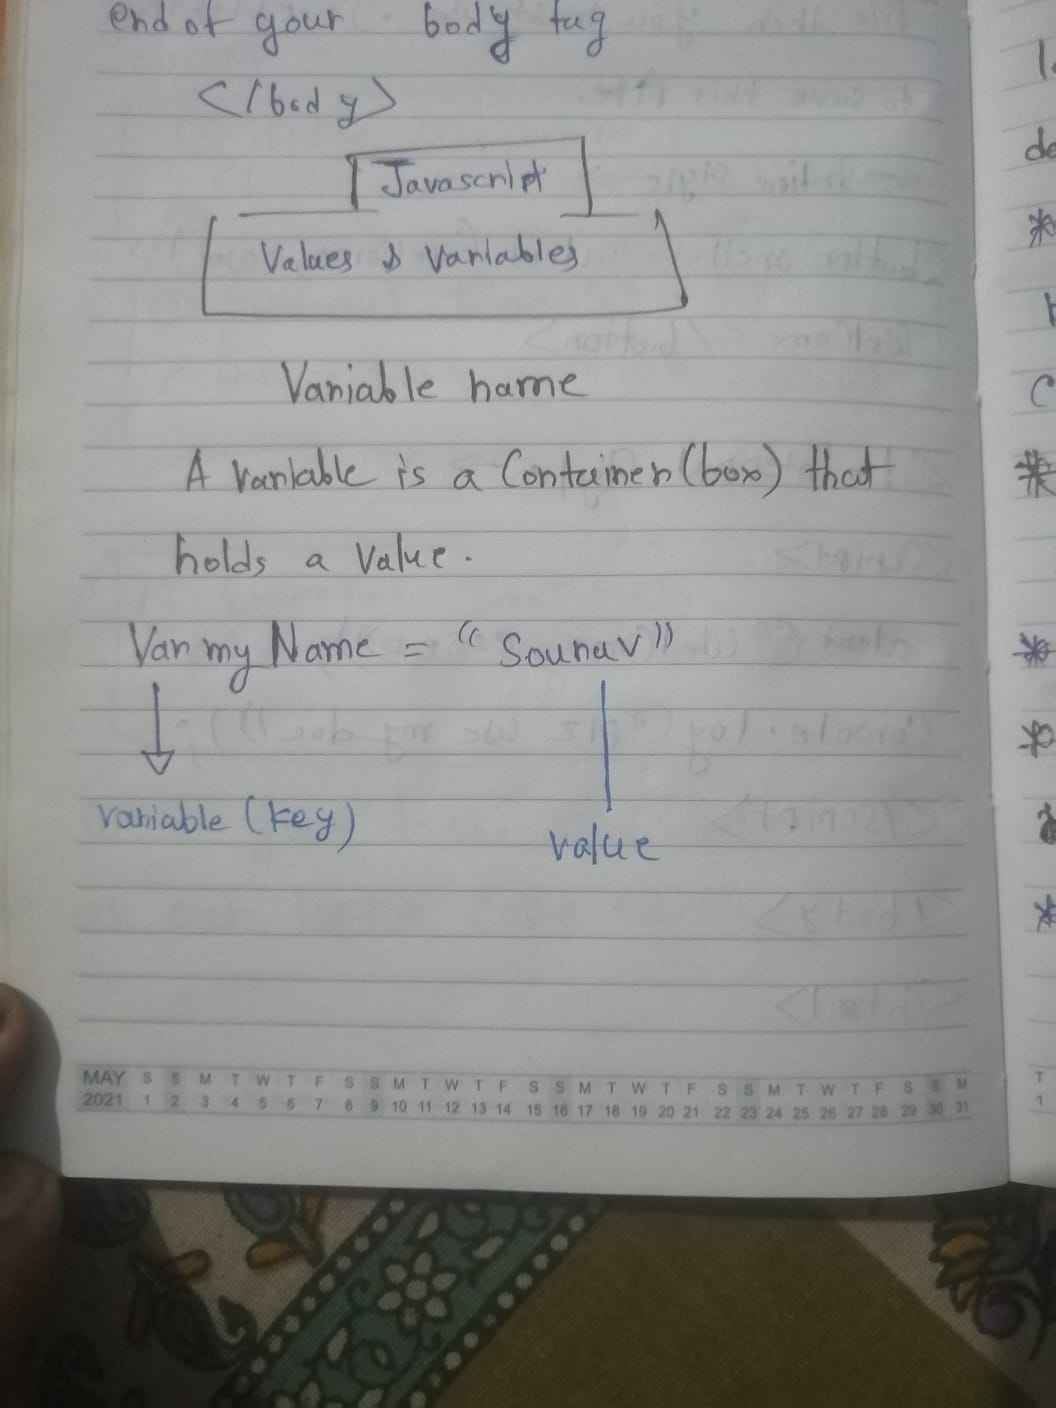 end of your body tag
</body>
Javascript
Values & Variables
Variable name
A variable is a Container (box) that
holds a value.
Var my Name = "Sounav"
variable (key)
value
MAY S S M T W T F S S M T W T F S S M T W T F S S M T W T F S S M
2021 1 2 3 4 5 6 7 8 9 10 11 12 13 14 15 16 17 18 19 20 21 22 23 24 25 26 27 28 29 30 31